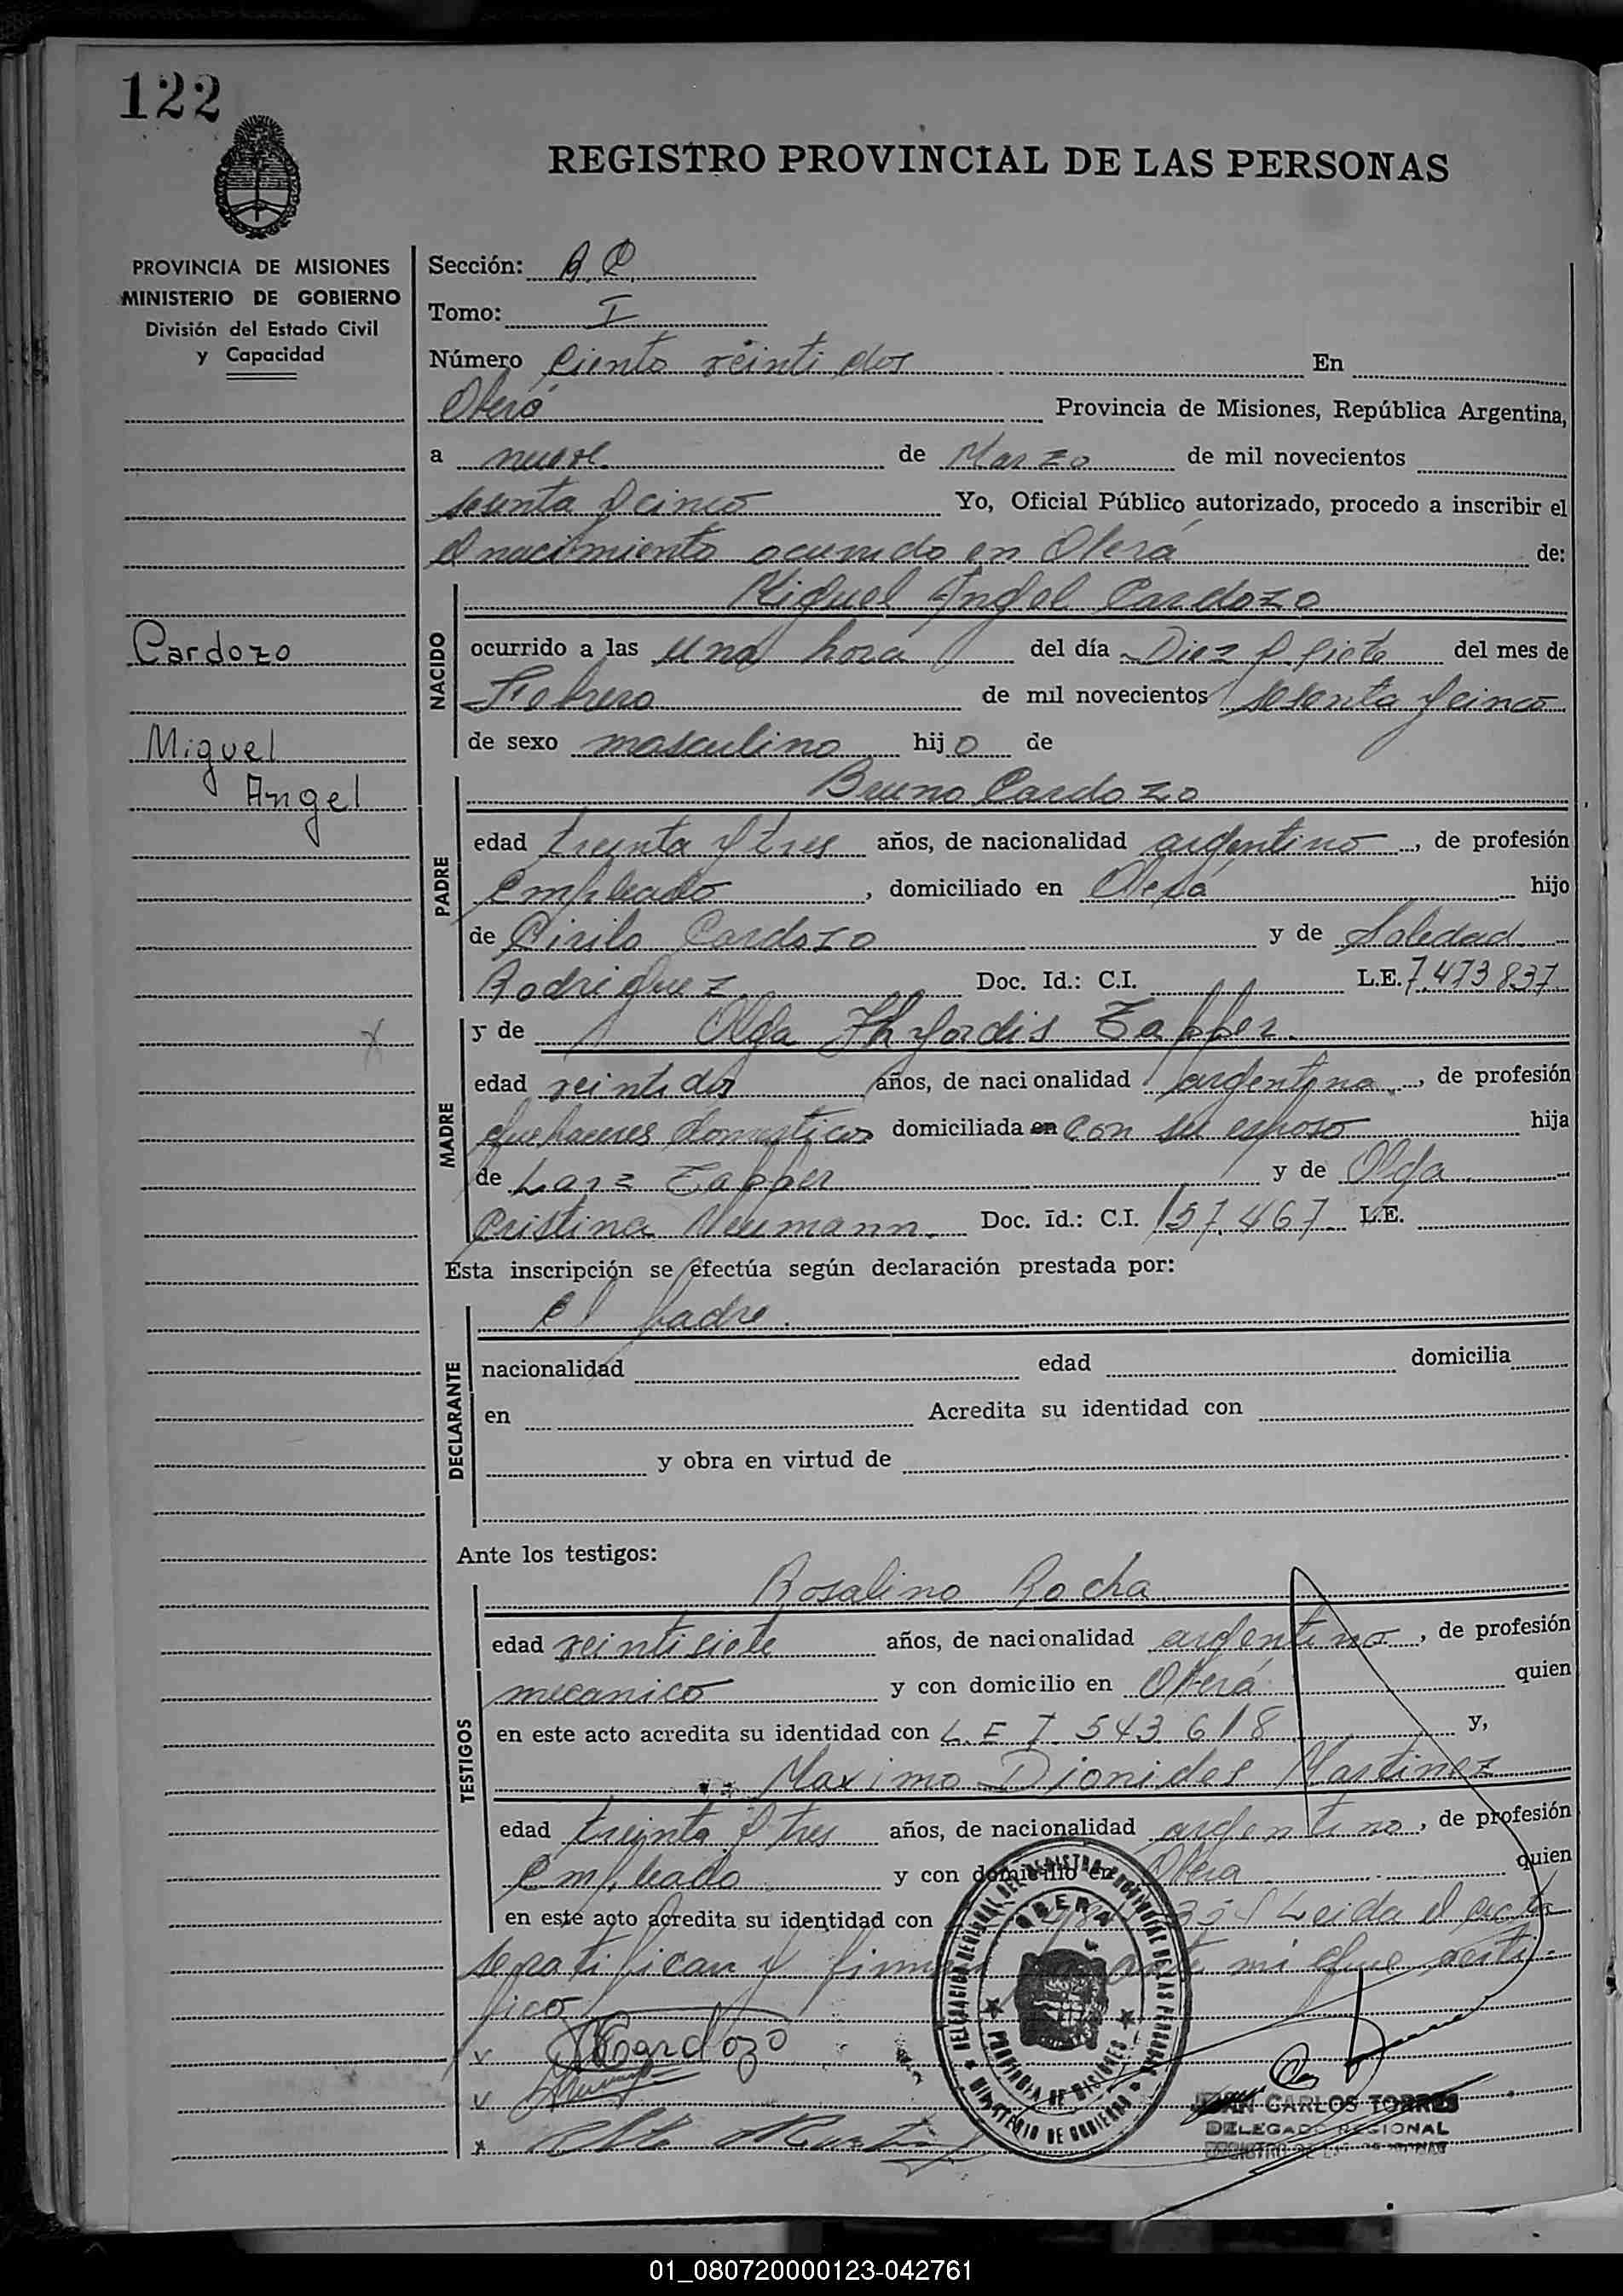 122
REGISTRO PROVINCIAL DE LAS PERSONAS
PROVINCIA DE MISIONES
MINISTERIO DE GOBIERNO
División del Estado Civil
y Capacidad
Cardozo
Miguel
Angel
Sección:
Tomo: I
Número Ciento veinti dos En
Oberá Provincia de Misiones, República Argentina,
a nueve de Marzo de mil novecientos
sesenta y cinco Yo, Oficial Público autorizado, procedo a inscribir el
el nacimiento ocurrido en Oberá de:
NACIDO
Miguel Angel Cardozo
ocurrido a las una hora del día Diez y siete del mes de
Febrero de mil novecientos sesenta y cinco
de sexo masculino hijo de
PADRE
Bruno Cardozo
edad treinta y tres años, de nacionalidad argentino, de profesión
Empleado, domiciliado en Oberá hijo
de Cirilo Cardozo y de Soledad
Rodriguez Doc. Id.: C.I. L.E. 7.473.837
MADRE
y de Olga Tapper.
edad veintidos años, de nacionalidad argentina, de profesión
quehaceres domesticos domiciliada en con su esposo hija
de Larz Tapper y de Olga
Cristina Neumann. Doc. Id.: C.I. 157.467 L.E.
Esta inscripción se efectúa según declaración prestada por:
DECLARANTE
el padre.
nacionalidad edad domicilia
en Acredita su identidad con
y obra en virtud de
Ante los testigos:
TESTIGOS
Rosalino Rocha
edad veintisiete años, de nacionalidad argentino, de profesión
mecanico y con domicilio en Oberá quien
en este acto acredita su identidad con L.E 7.543.618 y,
Maximo Dionides Martinez
edad treinta y tres años, de nacionalidad argentino, de profesión
Empleado y con domicilio en Obera quien
en este acto acredita su identidad con Leida el acta
se ratifican y firman ante mi que certi-
fico
Cardozo
DELEGACION REGIONAL DEL REGISTRO PROVINCIAL DE LAS PERSONAS
OBERA
PROVINCIA DE MISIONES
MINISTERIO DE GOBIERNO
JUAN CARLOS TORRES
DELEGADO REGIONAL
01_080720000123-042761